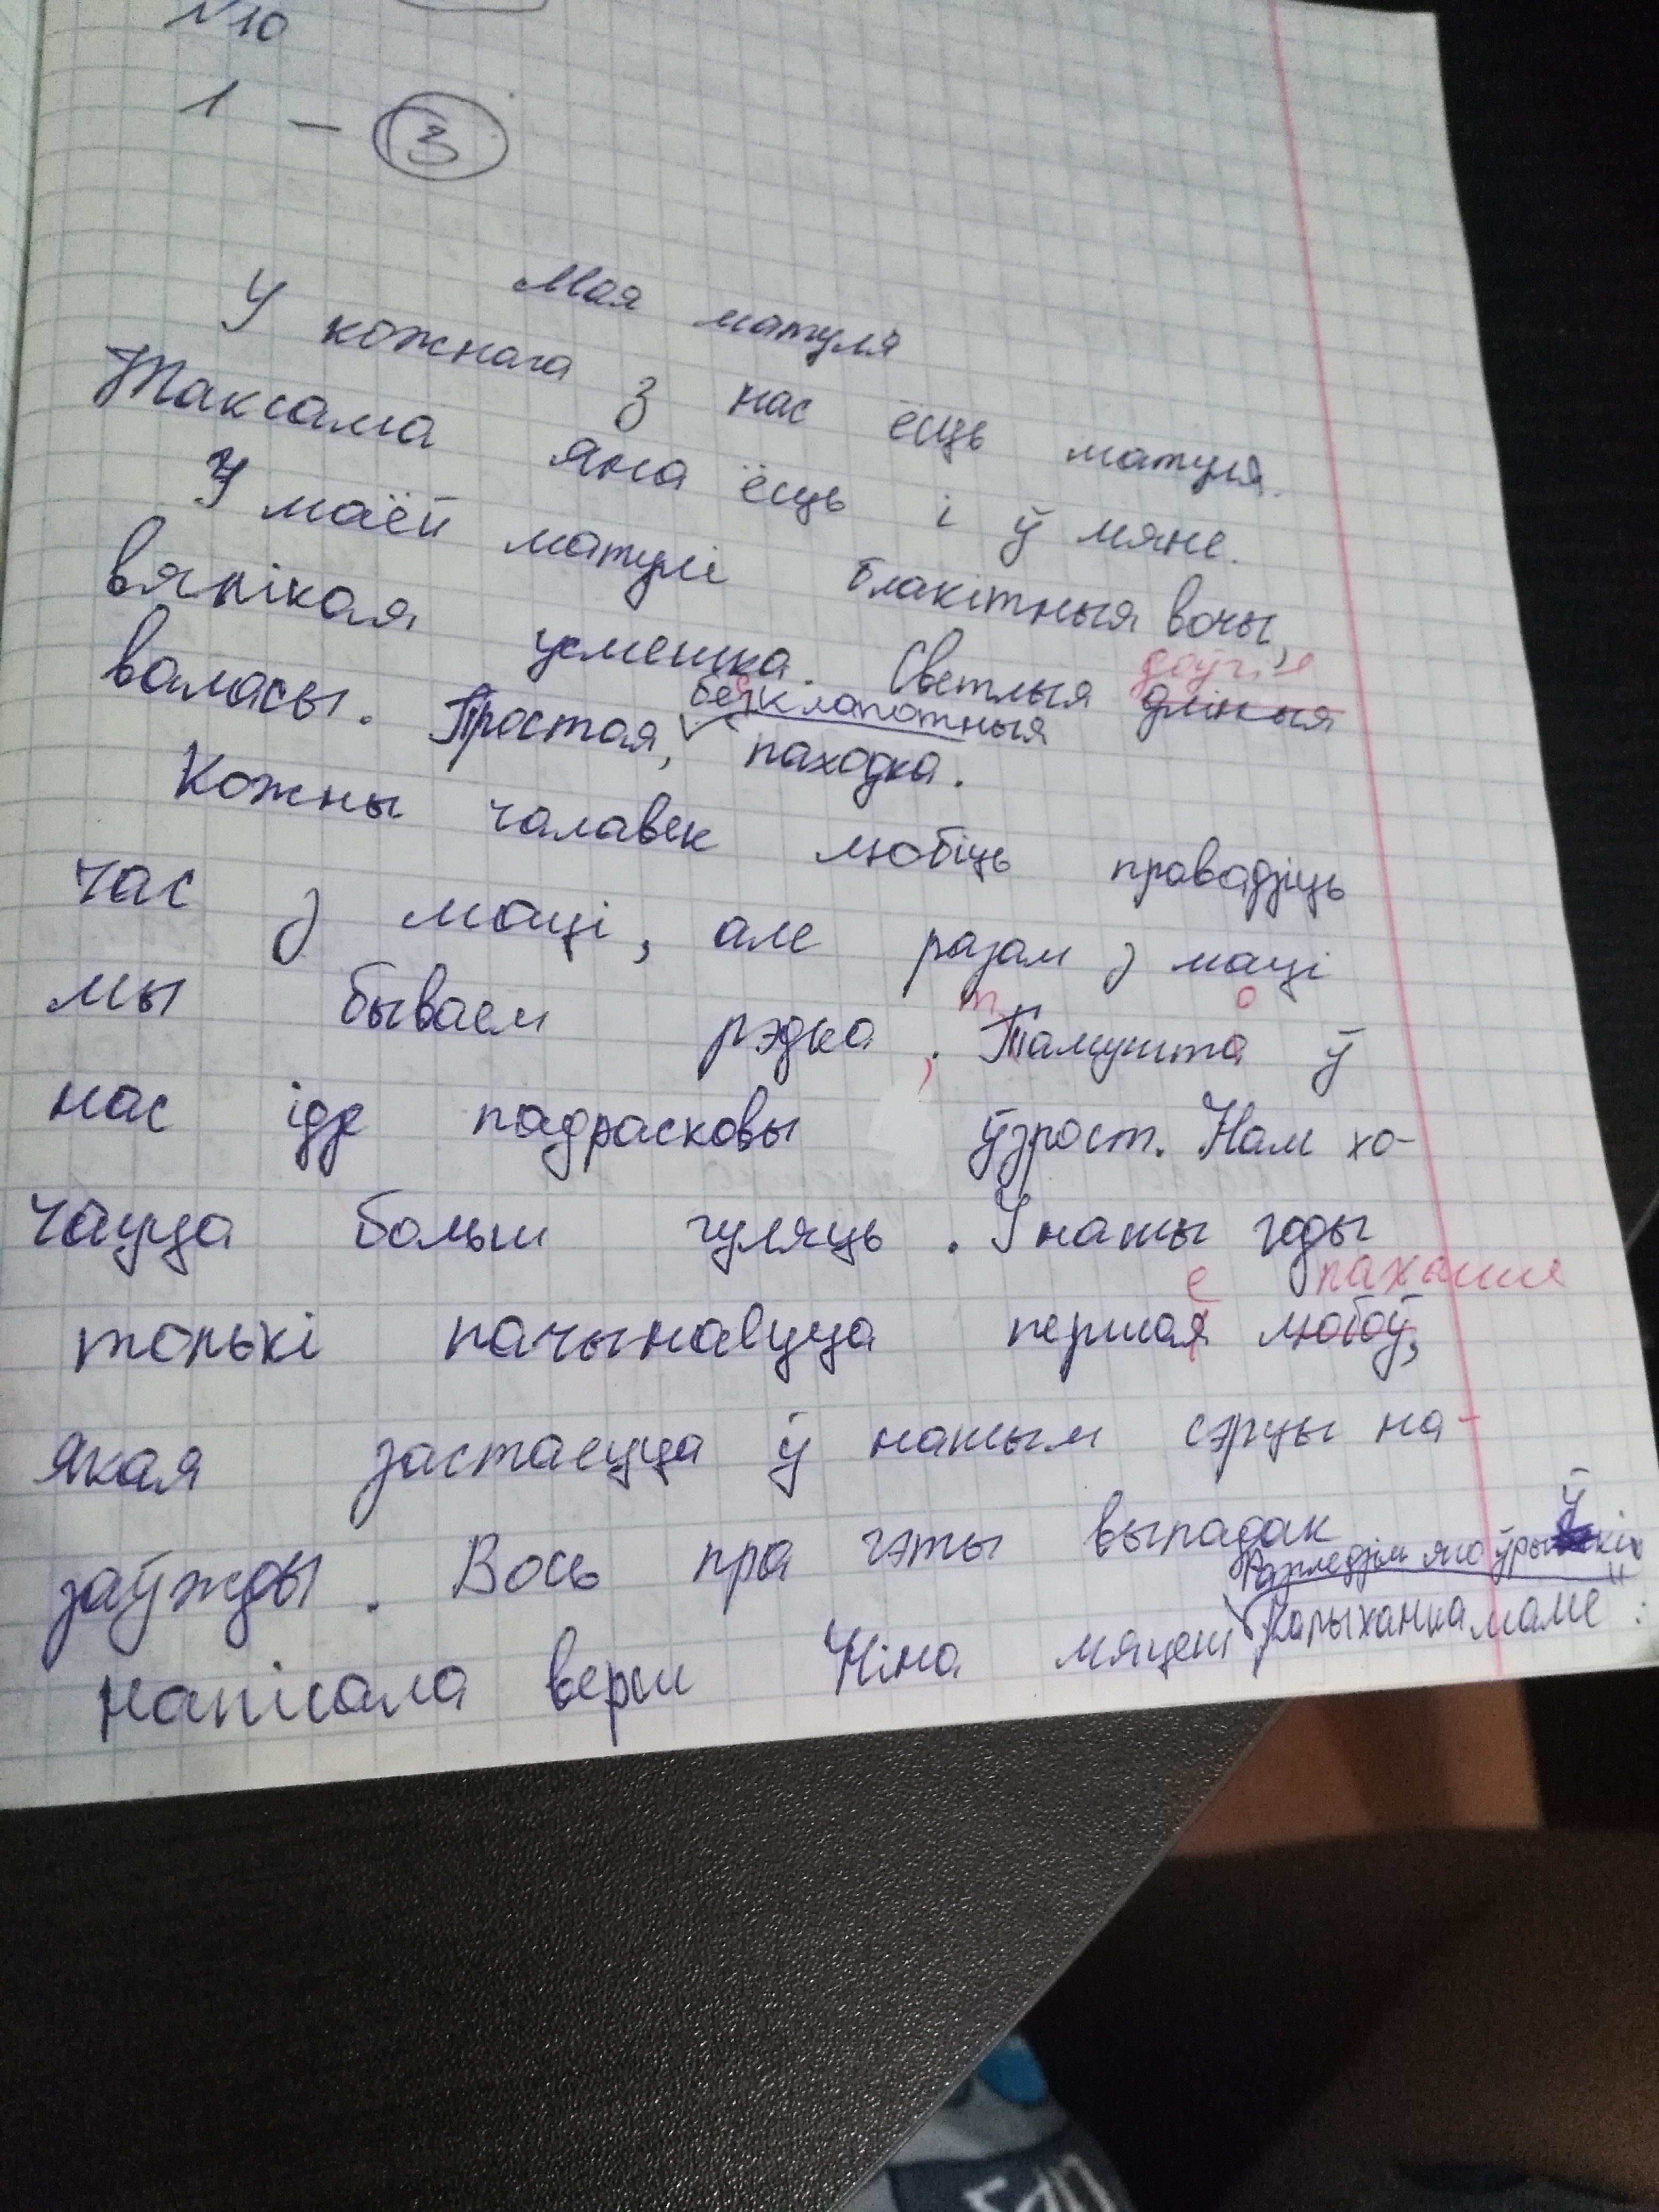 N10
1 – 3
Мая матуля
У кожнага з нас ёсць матуля.
Таксама яна ёсць і ў мяне.
У маёй матулі блакітныя вочы,
вялікая усмешка. Светлыя длінныя
доўгія
валасы. Простая, безклапотныя паходка.
с
Кожны чалавек любіць праводзіць
час з маці, але разам з маці
мы бываем рэдка. Тамушта ў
т о
,
нас ідзе падрасковы ўзрост. Нам хо-
чацца больш гуляць. У нашы годы
толькі пачынаецца першая любоў,
е пахання
якая застаецца ў нашым сэрцы на-
заўжды. Вось пра гэты выпадак
Разгледзім яго ўрыўкі
напісала верш Ніна мацеш "Калыханка маме":